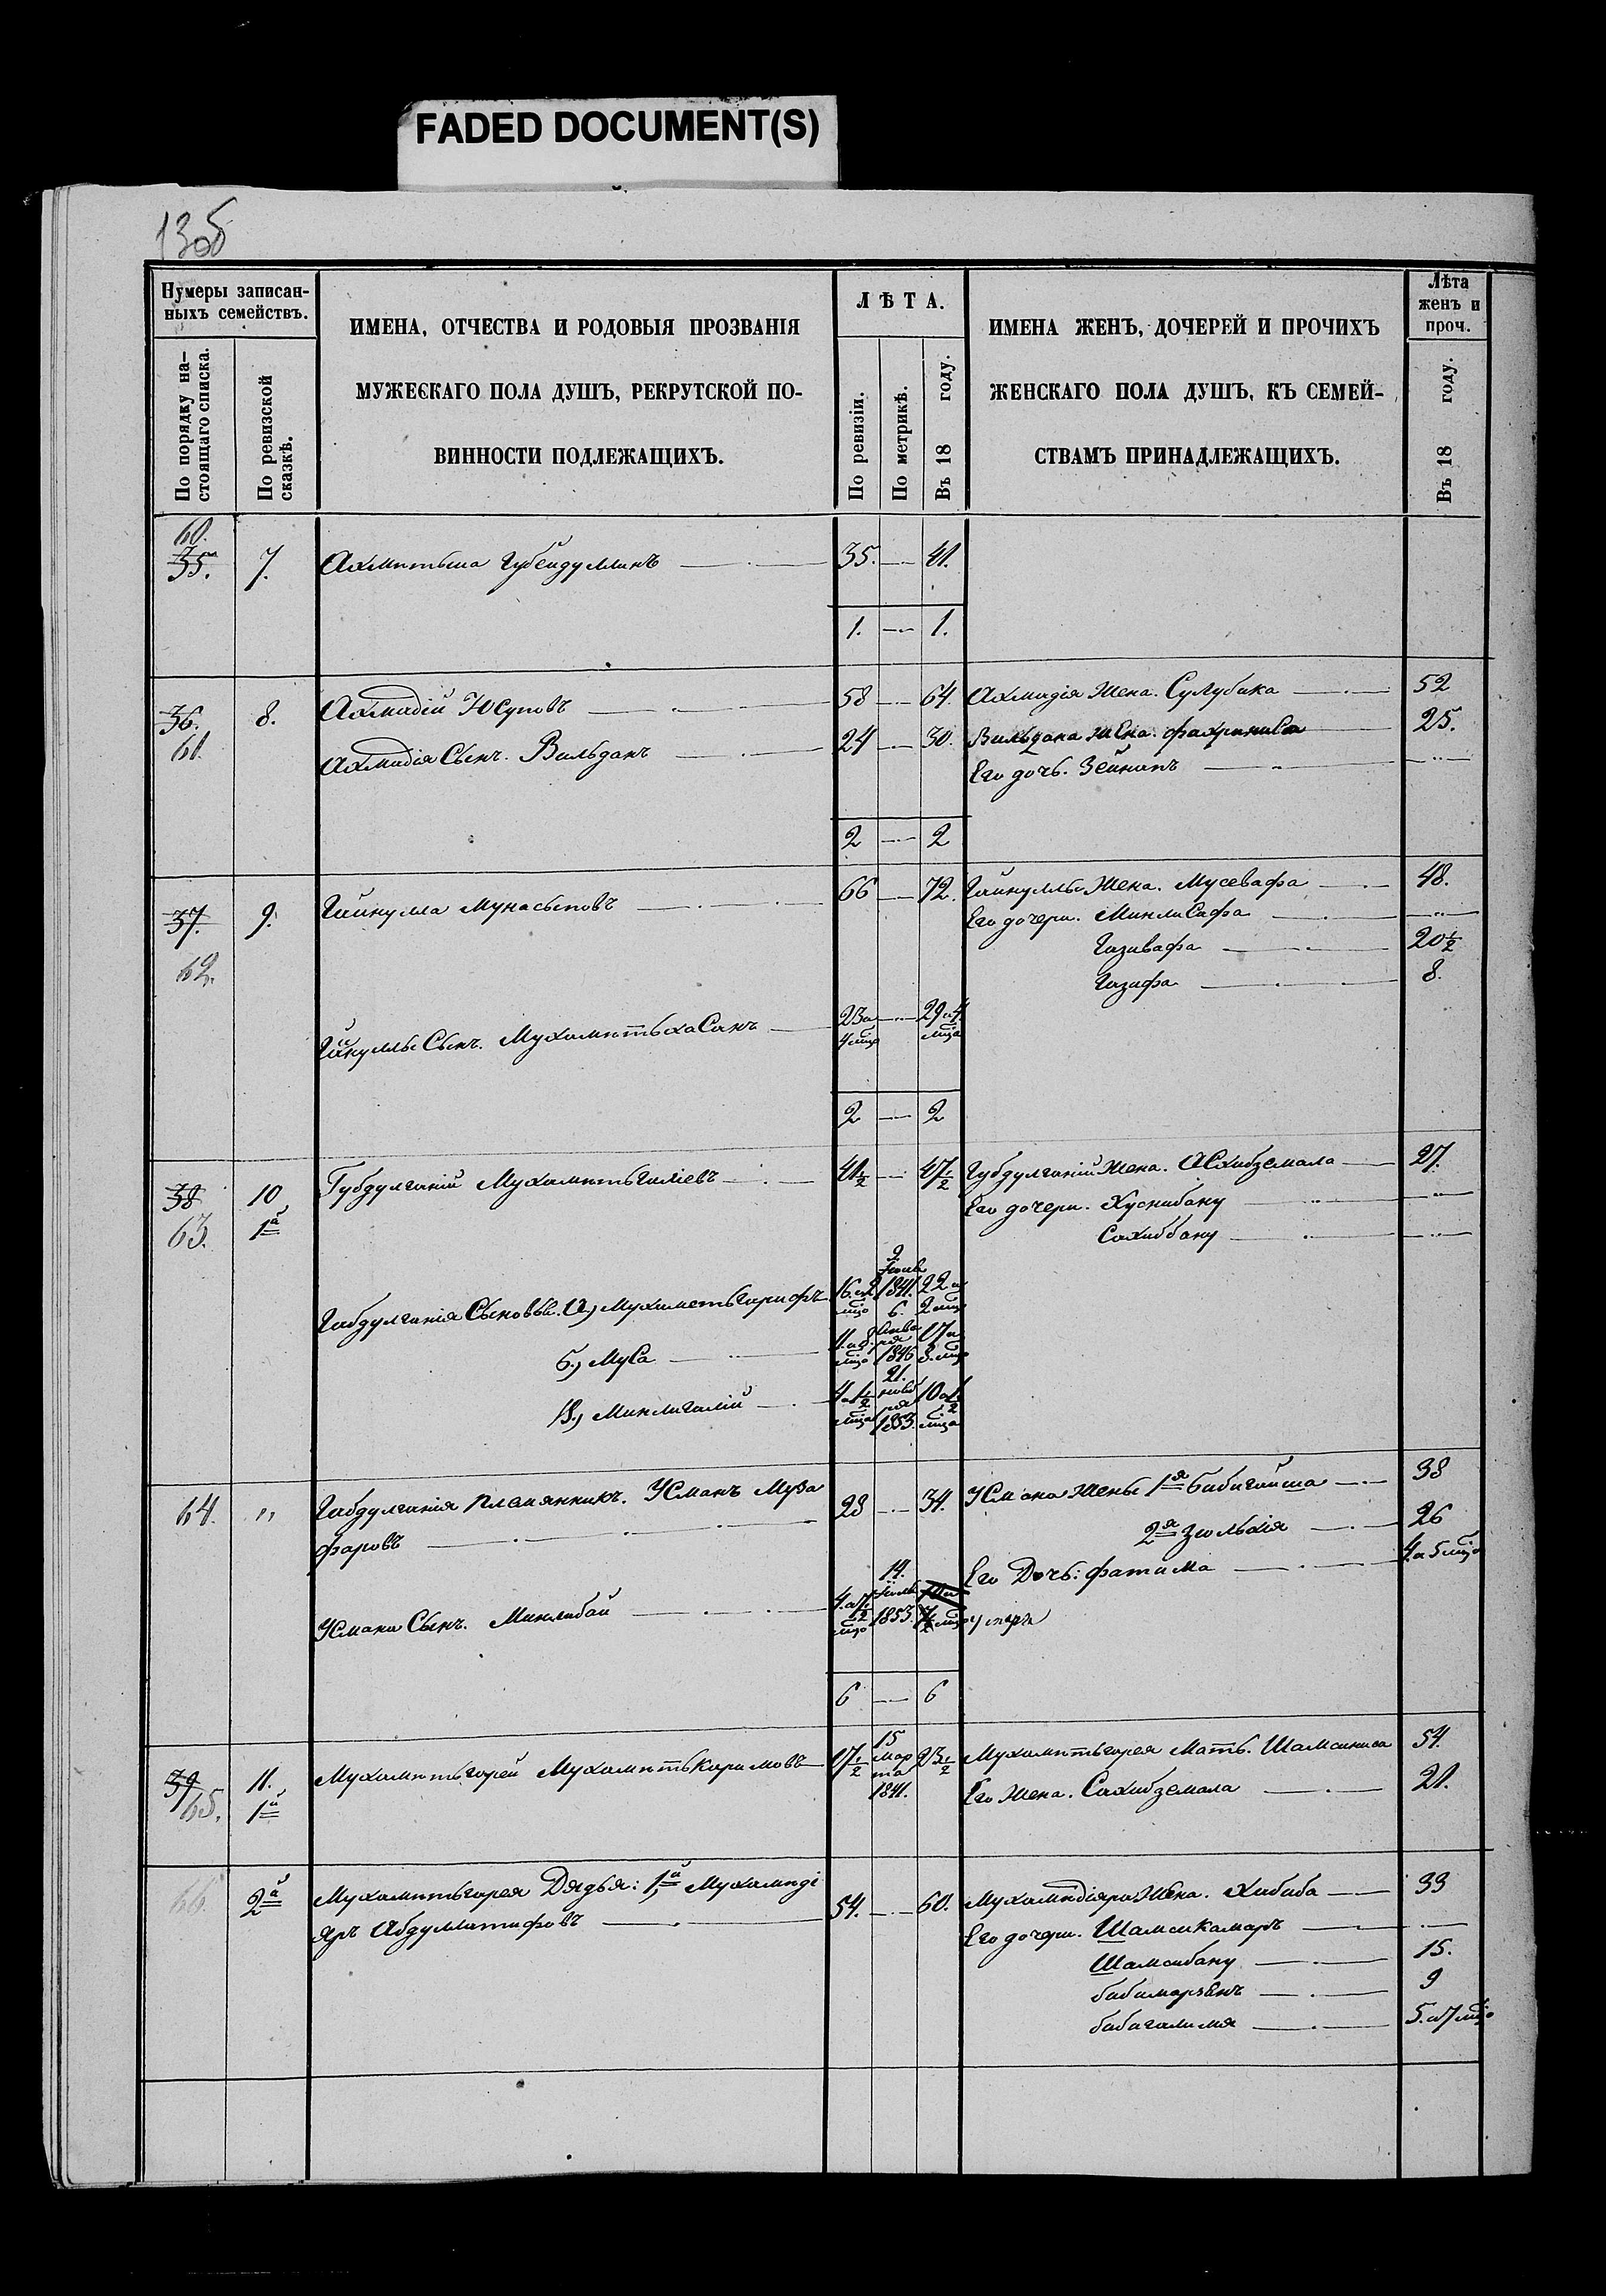 FADED DOCUMENT(S)
13об
Нумеры записан-
ныхъ семействъ.
По порядку на-
стоящаго списка.
По ревизской
сказкѣ.
ИМЕНА, ОТЧЕСТВА И РОДОВЫЯ ПРОЗВАНІЯ
МУЖЕСКАГО ПОЛА ДУШЪ, РЕКРУТСКОЙ ПО-
ВИННОСТИ ПОДЛЕЖАЩИХЪ.
ЛѢТА.
По ревизіи.
По метрикѣ.
Въ 18 году.
ИМЕНА ЖЕНЪ, ДОЧЕРЕЙ И ПРОЧИХЪ
ЖЕНСКАГО ПОЛА ДУШЪ, КЪ СЕМЕЙ-
СТВАМЪ ПРИНАДЛЕЖАЩИХЪ.
Лѣта
женъ и
проч.
Въ 18 году.
60.
35. 7. Ахметьша Губейдуллинъ 35. 41.
1. 1.
36. 8. Ахмадій Юсуповъ 58 64. Ахмадія Жена. Сулубика 52
61. Ахмадія Сынъ. Вильданъ 24 30. Вильдана Жена. Фахриниса 25.
Его дочь. Зейнапъ
2 2
37. 9. Гайнулла Мунасыповъ 66 72. Гайнуллы Жена. Мусевафа 48.
Его дочери. МинлиСафа
62. Газивафа 20 1/2
Газифа 8.
Гайнуллы Сынъ. МухаметьхаСанъ 23 и 4 мцa 29 и 4 мца
2 2
38 10 Губдулганій Мухаметьгаліевъ 41 1/2 47 1/2 Губдулганій Жена. АСхибземала 27.
63. 1й Его дочери. Хуснибану
Сахиббану
Габдулганія Сыновья. а.) Мухаметьгарифъ 16. и 2 мцa 9. Іюля 1841. 22 и 2 мца
б.) МуСа 11. и 8. мца 6. Января 1846 17 и 8. мца
в.) Минлигалій 4 и 1/2 мца 21. ноября 1853. 10 и 1/2 мца
64. " Габдулганія племянникъ. Усманъ Муза 28 34. Усмана Жены 1я бибигайша 38
фаровъ 2я Зюльхія 26
Его Дочь: фатима 4. и 5 мца
Усмана Сынъ. Минлибай 14. 1853. умеръ
6 6
39 11. Мухаметьгарей Мухаметькаримовъ 17 1/2 15 Марта 1841. 23 1/2 Мухаметьгарея Мать. Шамсиниса 54.
65. 1й Его Жена. Сахибземала 21.
66. 2й Мухаметьгарея Дядья: 1й, Мухамеді 54. 60. Мухамедіяра Жена. Хабиба 33
яръ Абдуллатифовъ Его дочери. Шамсикамаръ
Шамсибану 15.
бибимарзенъ 9
бибигалимя 5. и 7 мцa